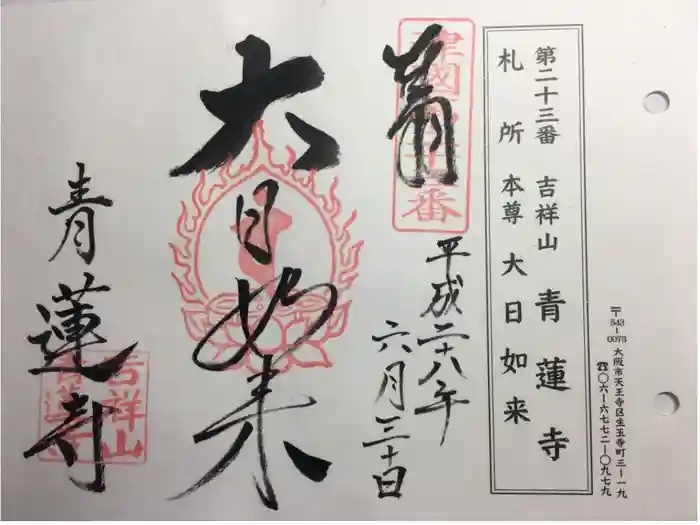 〒543-0073 大阪市天王寺区生玉寺町三-一九
☎〇六-六七七二-〇九七九
第二十三番 吉祥山 青蓮寺
札所本尊 大日如来
平成二十八年
六月三十日
大日如来
青蓮寺
吉祥山